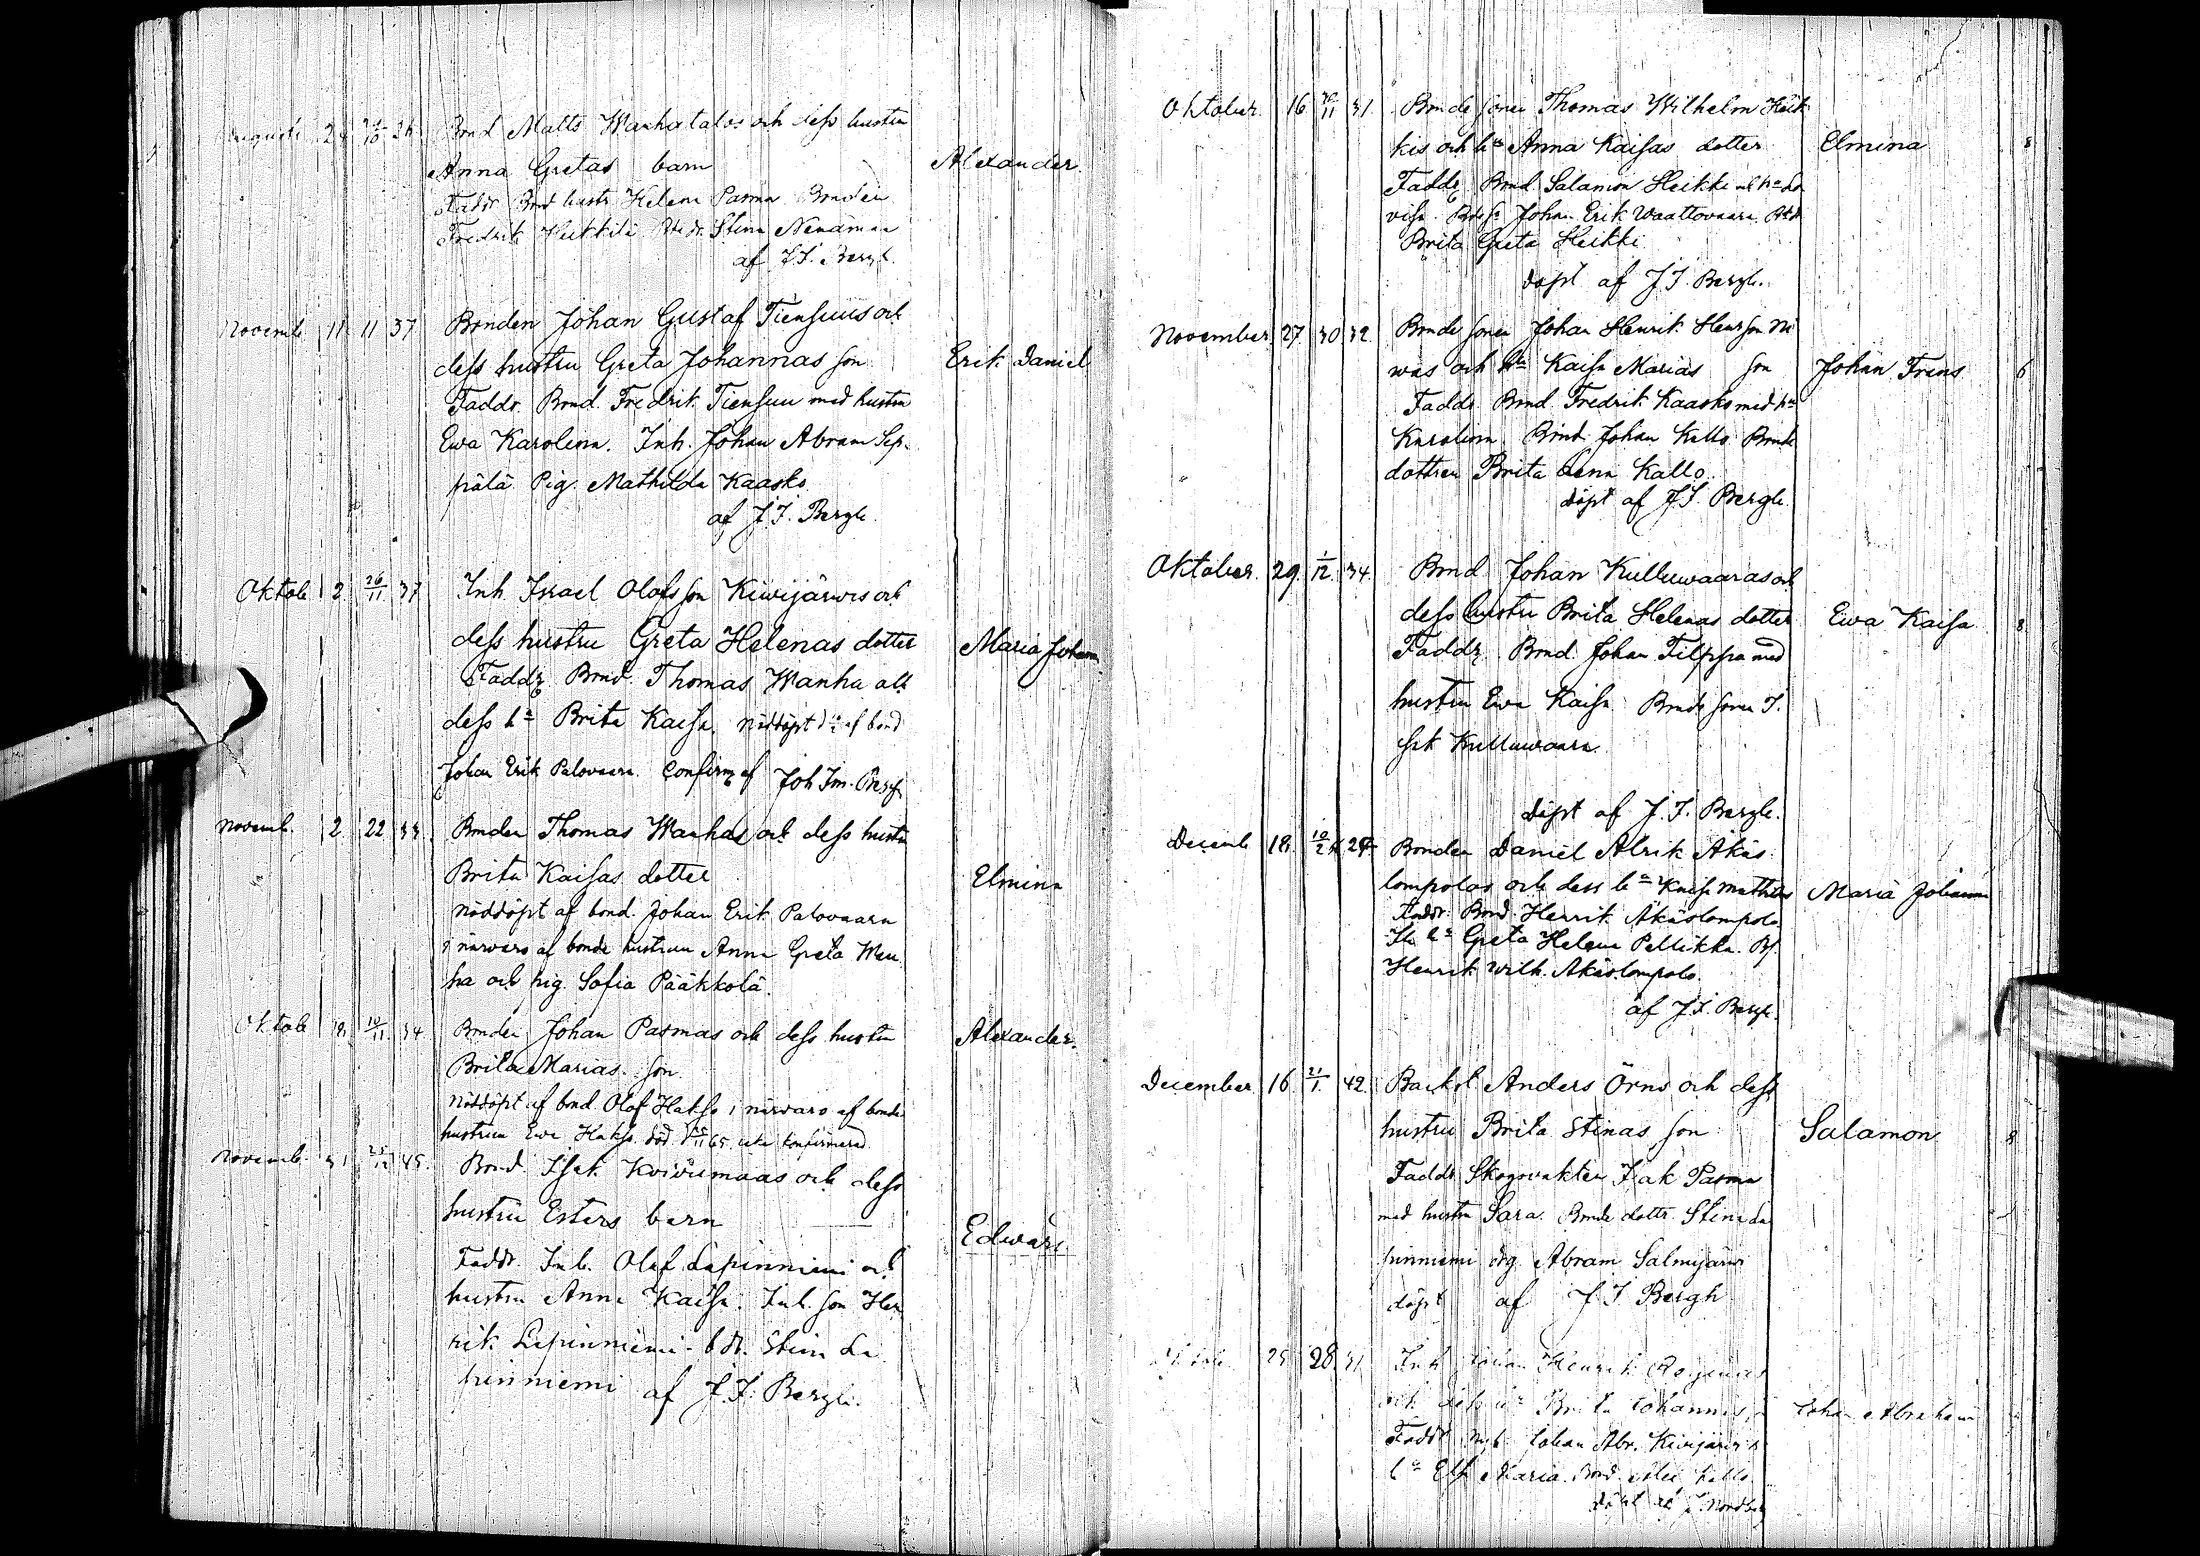 Augusti 24 26/10 36 Bond Matts Wanhatalos och dess hustru
Anna Gretas barn Alexander.
Faddr Bond hustr Helena Pasma Bonden
Fredrik Heikkilä Stina
af J.I. Bergh.
Novemb 11 11 37 Bonden Johan Gustaf Tiensuus och
dess hustru Greta Johannas son Erik Daniel
Faddr. Bond. Fredrik Tiensuu med hustru
Ewa Karolina. Inh. Johan Abram Sep-
pälä Pig. Mathilda Kaasko
af J.I. Bergh.
Oktob 2 26/11 37 Inh. Israel Olofsson Kiwijärwis och
dess hustru Greta Helenas dotter Maria Johan
Faddr Bond. Thomas Wanha och
dess ha Brita Kaisa. Nöddöpt af bond
Johan Erik Palovaara. Confirm af Joh Im. Bergh
Novemb. 2 22 33. Bonden Thomas Wanhas och dess hustru
Brita Kaisas dotter Elmina
Nöddöpt af bond. Johan Erik Palovaara
i närvaro af bonde hustrun Anna Greta Wan
ha och pig. Sofia Pääkkolä.
Oktob 18 10/11 34 Bonden Johan Pasmas och dess hustru Alexander.
Brita Marias son.
Nöddöpt af bond Olof Hakso i närvaro af bonde-
hustrun Ewa Hakso. död 65. icke konfirmerad.
Novemb. 31 25/12 45. Bond. Isak Koivumaas och dess
hustru Esters barn Edward
Faddr. Inh. Olof Lapinniemi och
hustru Anna Kaisa. Inh. son Hen
rik Lapinniemi. bdr. Stina La
pinniemi af J.I. Bergh.
Oktober. 16 20/11 31. Bonde sonen Thomas Wilhelm Heik
kis och ha Anna Kaisas dotter Elmina 8
Faddr Bond. Salamon Heikki och ha Lo
visa. Johan Erik Waattovaara
Brita Greta Heikki
döpt af J.I. Bergh.
November 27 30 32. Bonde sonen Johan Henrik Henrsson Ni
was och ha Kaisa Marias son Johan Frans 6
Faddr. Bond Fredrik Kaasko med ha
Karolina. Bond. Johan Kallo Bonde
dottren Brita Lena Kallo.
döpt af J.I. Bergh.
Oktober. 29. 1/12. 34. Bond Johan Kulluwaaras och
dess hustru Brita Helenas dotter Ewa Kaisa 8
Faddr Bond. Johan Filppa med
hustru Ewa Kaisa Bonde sonen I-
sak Kulluwaara.
döpt af J.I. Bergh.
Decemb 18. 10/2 27 Bonden Daniel Alrik Äkäs-
lompolos och dess ha Kaisa Mathildas Maria Johanna
Faddr. Bond. Henrik Äkäslompolo
ha Greta Helena Pellikka.
Henrik Wilh. Äkäslompolo.
af J.I. Bergh.
December 16 21/1. 42. Anders Örns och dess
hustru Brita Stinas son Salamon 8
Faddr. Skogsvakten Isak Pasma
med hustru Sara. Bonde dottr. Stina La
pinniemi drg. Abram Salmijärvi
döpt af J.I Bergh
25 28 31 Inh Johan Henrik
och dess ha Brita Johannas Johan Abraham
Faddr Johan Abr. Kiwijärvi
ha Elsa Maria. Bond. Kallo
döpt af J. Nordberg